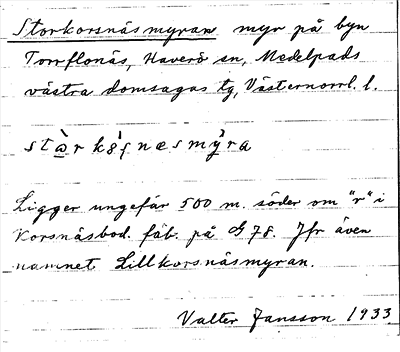 Storkorsnäsmyran myr på byn
Torrflonäs, Haverö sn, Medelpads
västra domsagas tg, Västernorrl. l.
Ligger ungefär 500 m. söder om "r" i
Korsnäsbod. fäb. på G 78. Jfr även
namnet Lillkorsnäsmyran.
Valter Jansson 1933